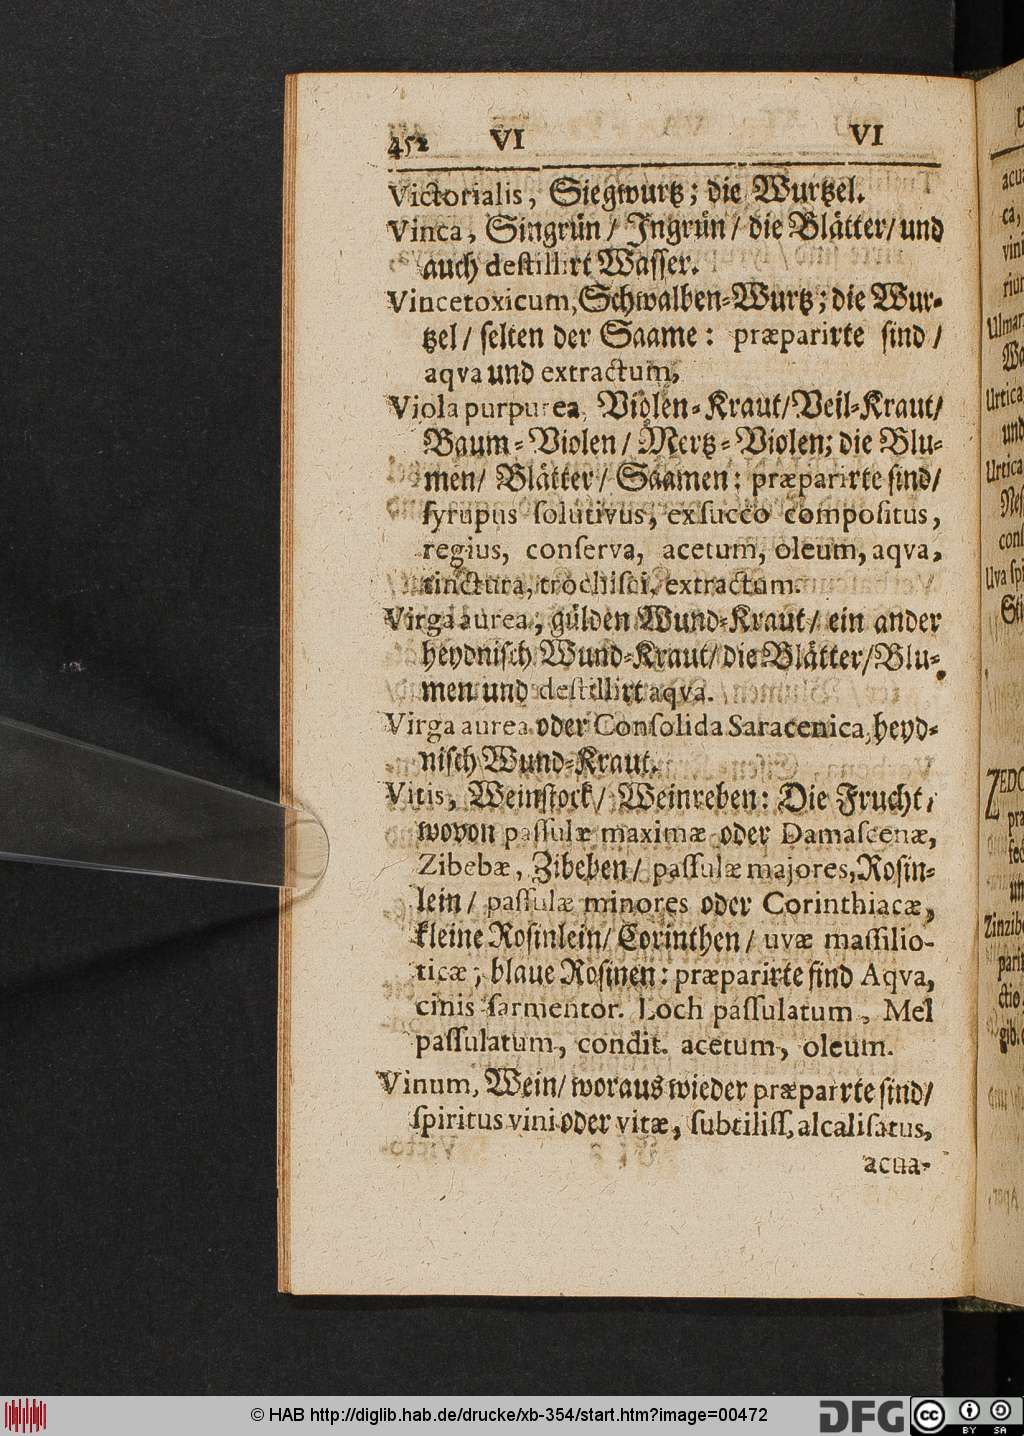 452 VI VI
Victorialis, Siegwurtz; die Wurtzel.
Vinca, Singrün / Ingrün / die Blätter/ und
auch destillirt Wasser.
Vincetoxicum, Schwalben-Wurtz; die Wur-
tzel / selten der Saame: præparirte sind /
aqva und extractum,
Viola purpurea, Violen-Kraut/ Veil-Kraut/
Baum-Violen / Mertz-Violen; die Blu-
men/ Blätter / Saamen: præparirte sind/
ſyrupus ſolutivus, ex ſucco compoſitus,
regius, conſerva, acetum, oleum, aqva,
tinctura, trochiſci, extractum.
Virga aurea, gülden Wund-Kraut / ein ander
heydnisch Wund-Kraut/ die Blätter/ Blu-
men und deſtillirt aqva.
Virga aurea oder Conſolida Saracenica, heyd-
nisch Wund-Kraut.
Vitis, Weinstock/ Weinreben: Die Frucht/
wovon paſſulæ maximæ oder Damaſcenæ,
Zibebæ, Zibeben/ paſſulæ majores, Rosin-
lein / paſſulæ minores oder Corinthiacæ,
kleine Rosinlein/ Corinthen / uvæ maſſilio-
ticæ; blaue Rosinen: præparirte sind Aqva,
cinis ſarmentor. Loch paſſulatum, Mel
paſſulatum, condit. acetum, oleum.
Vinum, Wein/ woraus wieder præparrte sind/
ſpiritus vini oder vitæ, ſubtiliſſ, alcaliſatus,
acua-
acua
ca,
vini
riun
Ulmar
Wo
Urtica
und
Urtica
Nes
conſ
Uva ſpi
Sti
ZEDO
præ
ſec
un
Zinzibe
parir
ctio
gib.
© HAB http://diglib.hab.de/drucke/xb-354/start.htm?image=00472
DFG
cc BY SA